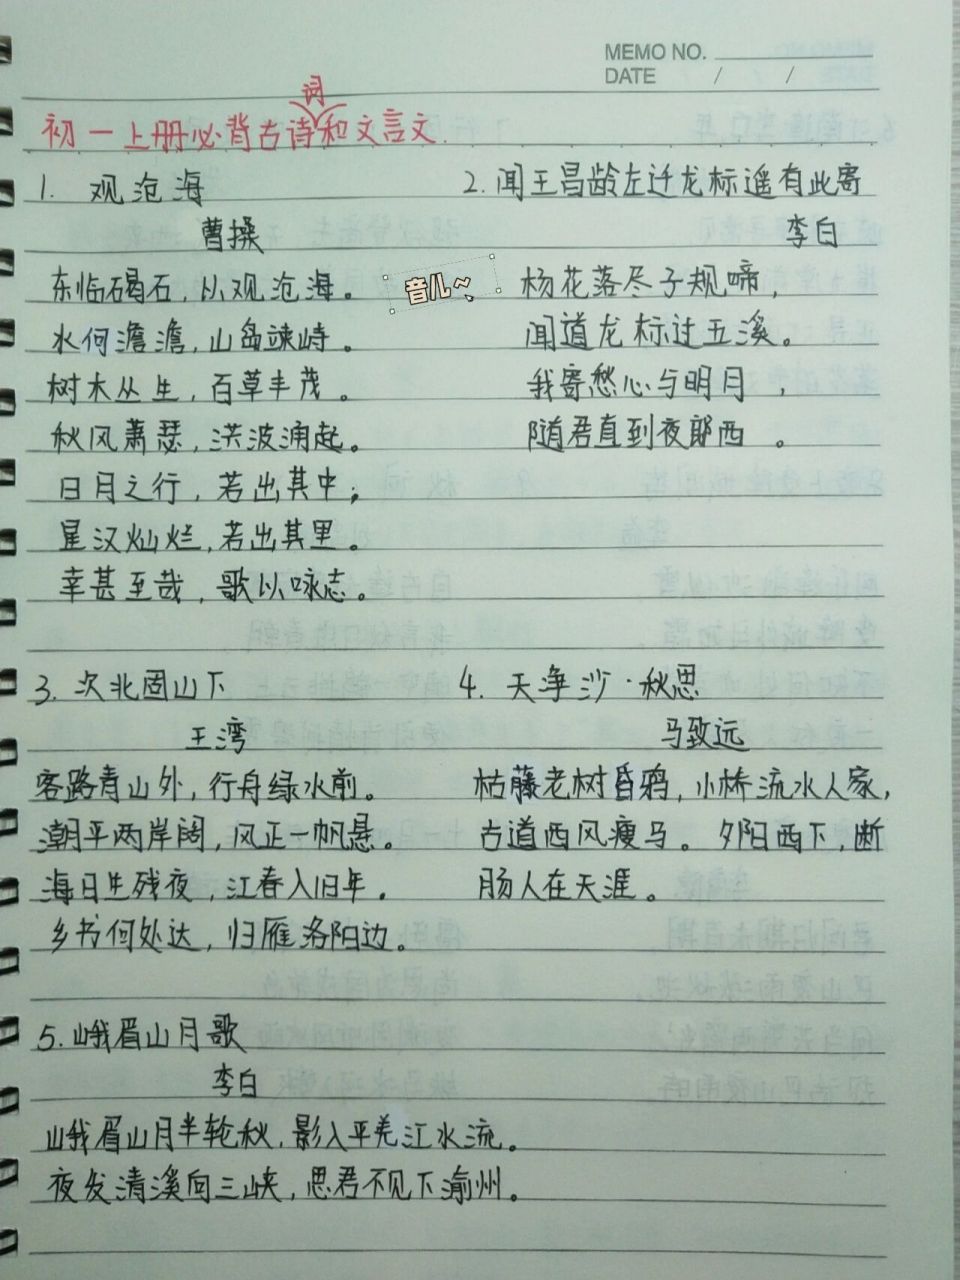 MEMO NO.
DATE / /
初一上册必背古诗词和文言文
1. 观沧海
曹操
东临碣石，以观沧海。
水何澹澹，山岛竦峙。
树木丛生，百草丰茂。
秋风萧瑟，洪波涌起。
日月之行，若出其中；
星汉灿烂，若出其里。
幸甚至哉，歌以咏志。
音儿~
2. 闻王昌龄左迁龙标遥有此寄
李白
杨花落尽子规啼，
闻道龙标过五溪。
我寄愁心与明月，
随君直到夜郎西。
3. 次北固山下
王湾
客路青山外，行舟绿水前。
潮平两岸阔，风正一帆悬。
海日生残夜，江春入旧年。
乡书何处达，归雁洛阳边。
4. 天净沙·秋思
马致远
枯藤老树昏鸦，小桥流水人家，
古道西风瘦马。夕阳西下，断
肠人在天涯。
5. 峨眉山月歌
李白
峨眉山月半轮秋，影入平羌江水流。
夜发清溪向三峡，思君不见下渝州。